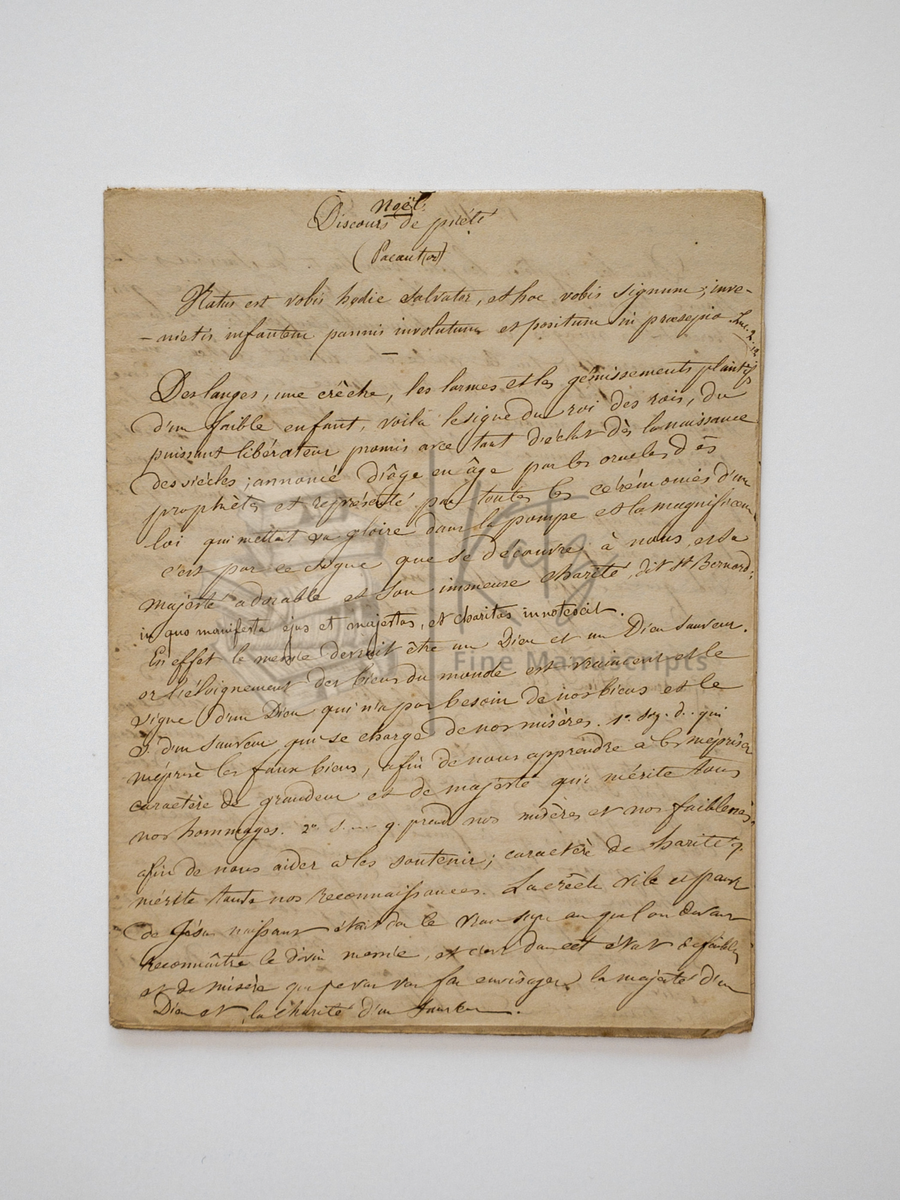 Noël.
Discours de piété
Natus est vobis hodie salvator, et hoc vobis signum; inve-
-nietis infantem pannis involutum et positum in præsepio. Luc. 2. 12
Des langes, une crêche, les larmes et les gémissements plaintifs
d'un faible enfant, voilà le signe du roi des rois, du
puissant libérateur promis avec tant d'éclat dès la naissance
des siècles; annoncé d'âge en âge par les oracles des
prophètes et représenté par toutes les cérémonies d'une
loi qui mettait sa gloire dans la pompe et la magnificence
c'est par ce signe que se découvre à nous, et sa
majesté adorable et son immense charité, dit St Bernard:
in quo manifesta ejus et majestas, et charitas innotescit.
En effet le messie devait être un Dieu et un Dieu sauveur.
or l'éloignement des biens du monde est vraiment et le
signe d'un Dieu qui n'a pas besoin de nos biens et le
S. d'un Sauveur qui se charge de nos misères. 1° sig. d. qui
méprise les faux biens, afin de nous apprendre à les mépriser
caractère de grandeur et de majesté qui mérite tous
nos hommages. 2° s. q. prend nos misères et nos faiblesses
afin de nous aider à les soutenir; caractère de charité q.
mérite toutes nos reconnaissances. La crêche vile et pauvre
de Jésus naissant était donc le vrai signe auquel on devait
reconnaître le divin messie, et c'est dans cet état de faiblesse
et de misère que je vais vous faire envisager la majesté d'un
Dieu et la charité d'un Sauveur.
Katz
Fine Manuscripts